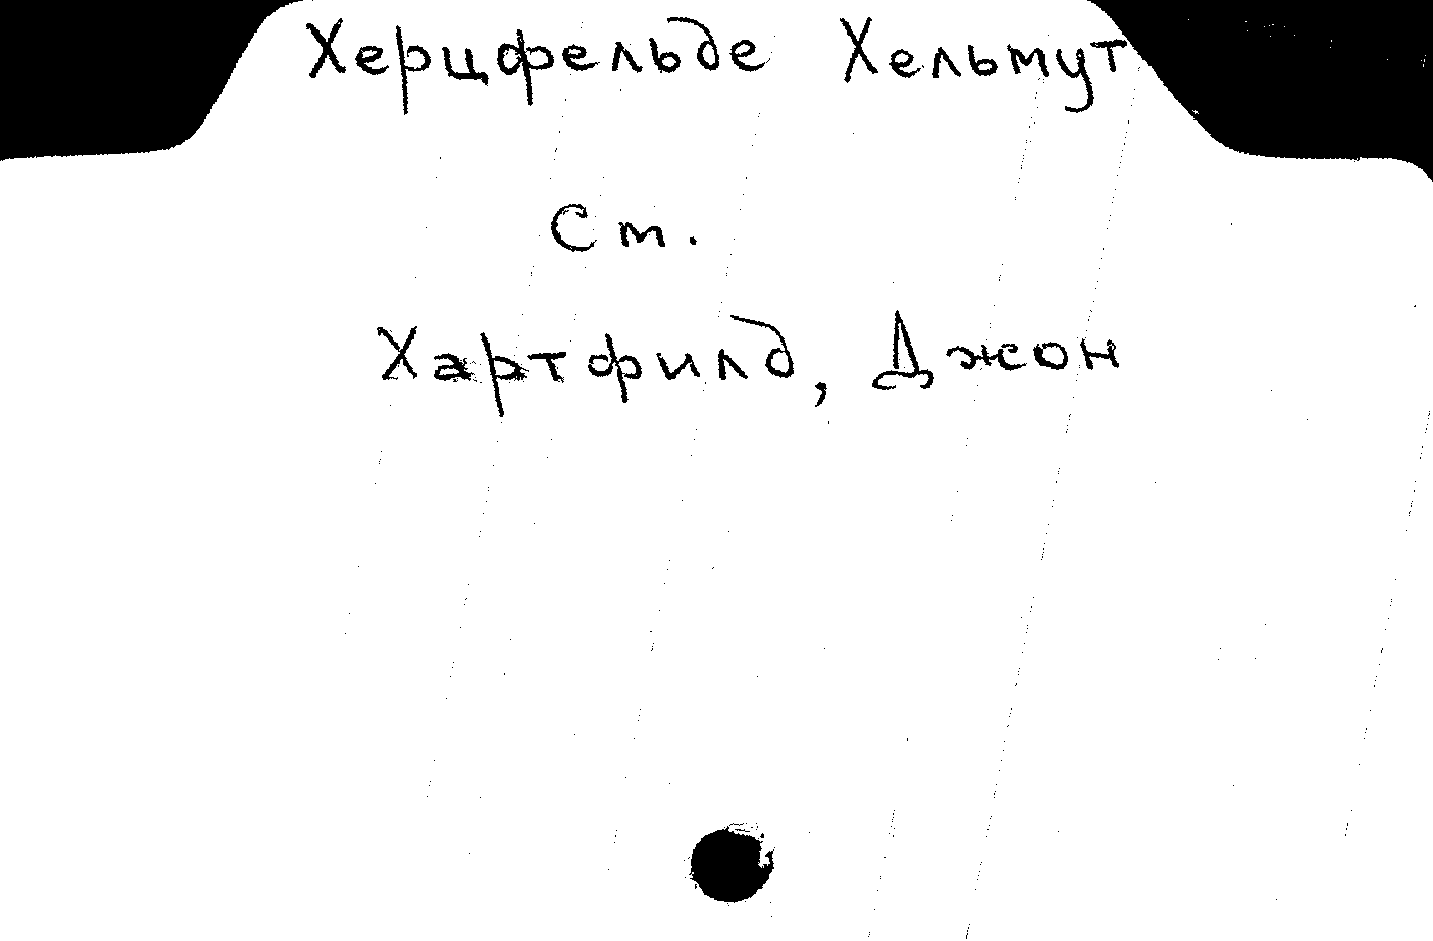 Херцфельде Хельмут
Ст.
Хартфилд, Джон